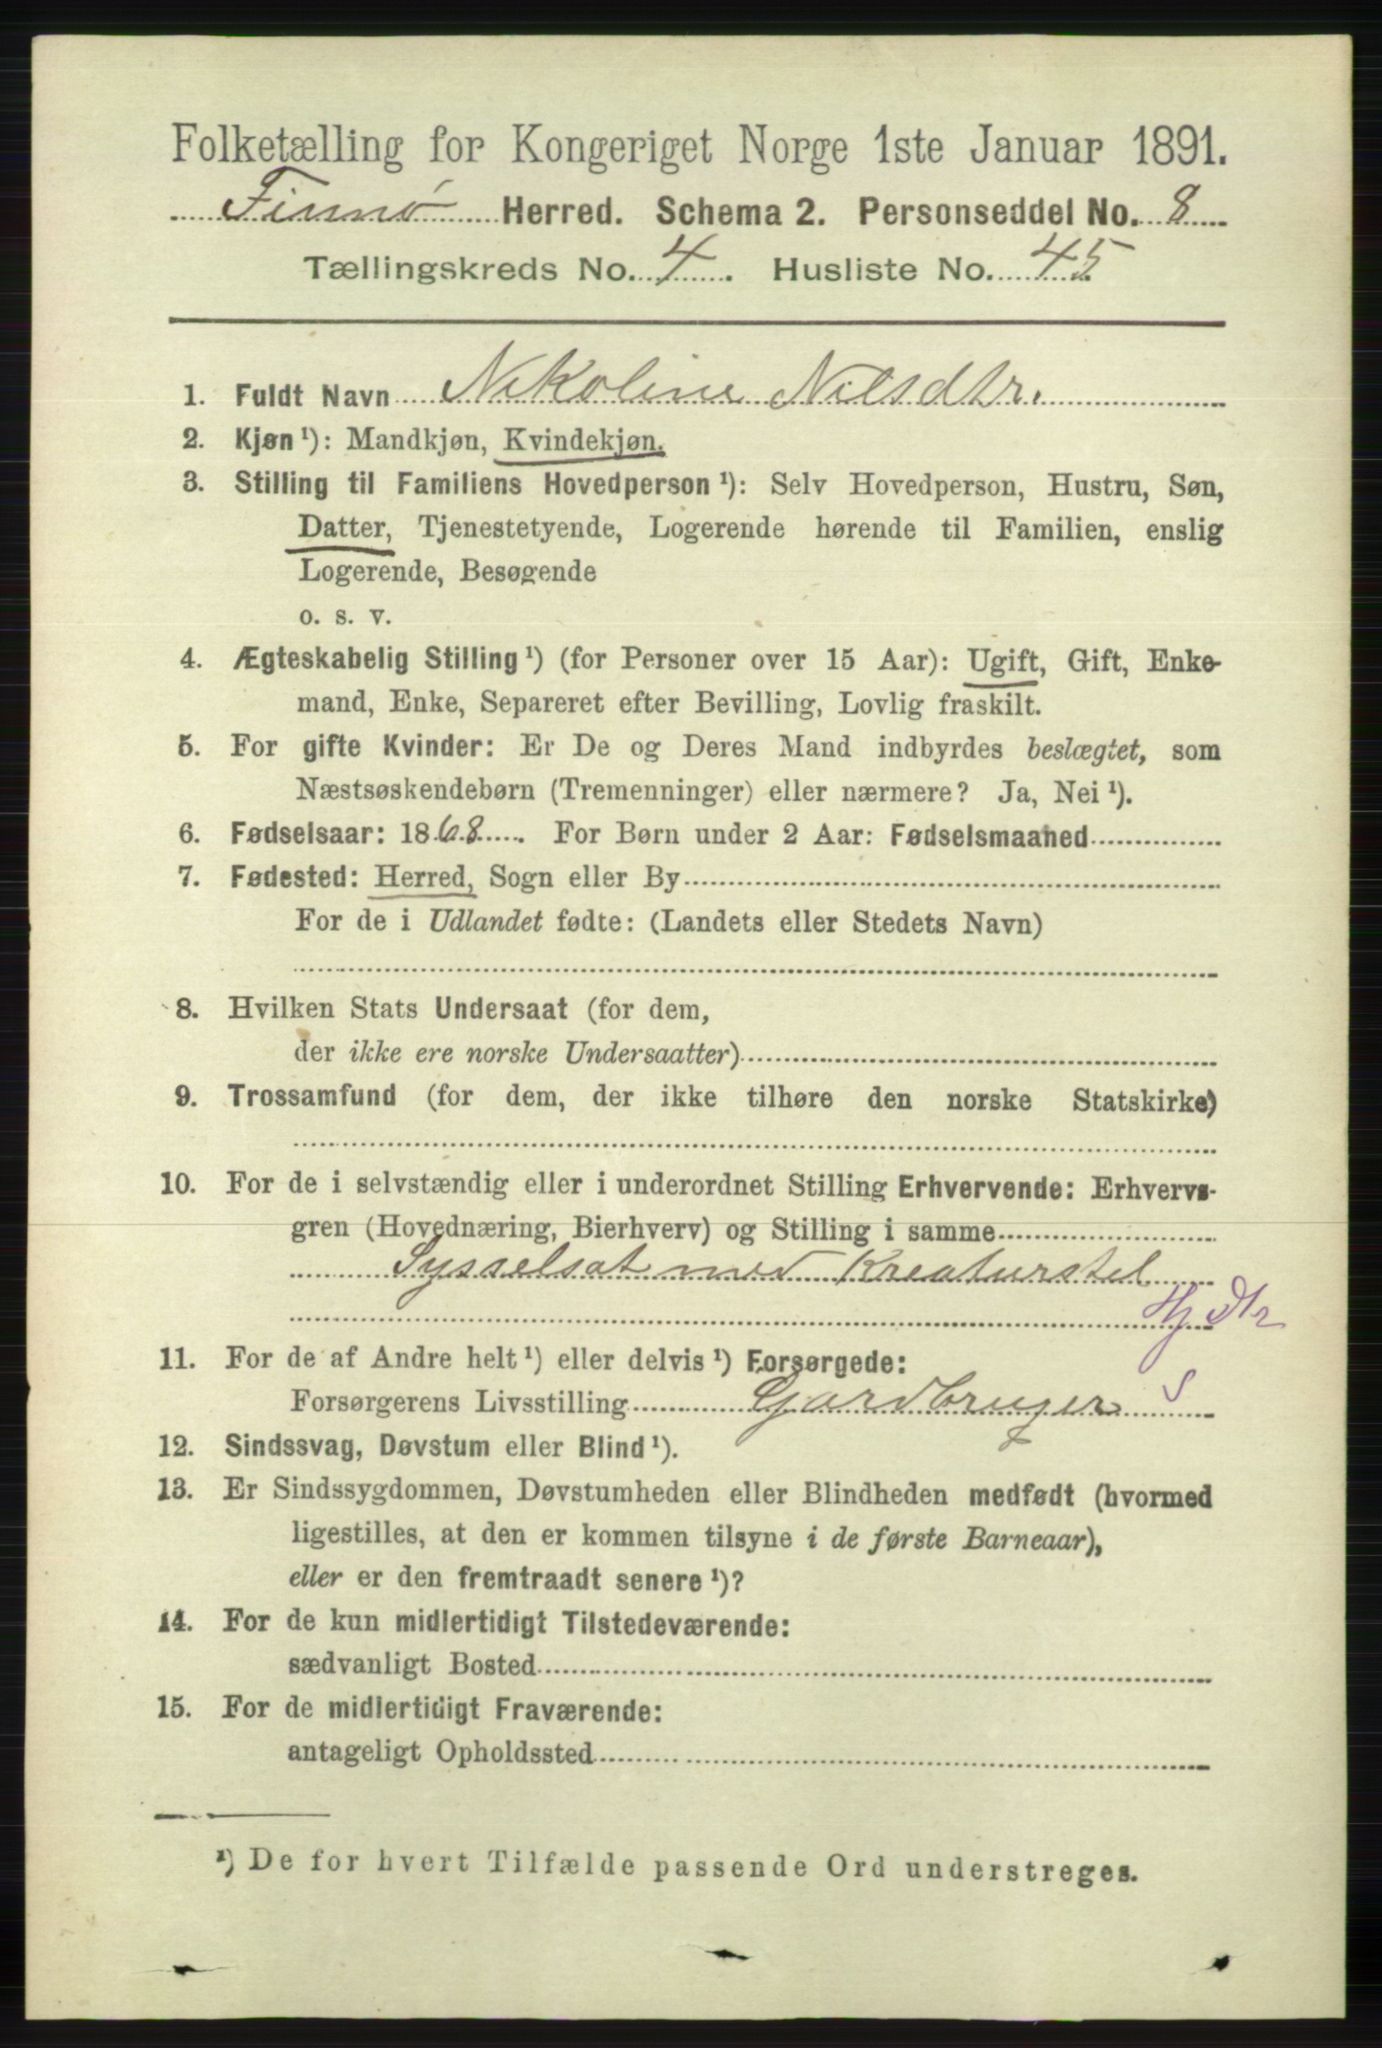 Folketælling for Kongeriget Norge 1ste Januar 1891.
Finnø Herred. Schema 2. Personseddel No. 8
Tællingskreds No. 4. Husliste No. 45
1. Fuldt Navn Nikoline Nilsdtr.
2. Kjøn ¹): Mandkjøn, Kvindekjøn.
3. Stilling til Familiens Hovedperson ¹): Selv Hovedperson, Hustru, Søn,
Datter, Tjenestetyende, Logerende hørende til Familien, enslig
Logerende, Besøgende
o. s. v.
4. Ægteskabelig Stilling ¹) (for Personer over 15 Aar): Ugift, Gift, Enke-
mand, Enke, Separeret efter Bevilling, Lovlig fraskilt.
5. For gifte Kvinder: Er De og Deres Mand indbyrdes beslægtet, som
Næstsøskendebørn (Tremenninger) eller nærmere? Ja, Nei ¹).
6. Fødselsaar: 1868. For Børn under 2 Aar: Fødselsmaaned
7. Fødested: Herred, Sogn eller By
For de i Udlandet fødte: (Landets eller Stedets Navn)
8. Hvilken Stats Undersaat (for dem,
der ikke ere norske Undersaatter)
9. Trossamfund (for dem, der ikke tilhøre den norske Statskirke)
10. For de i selvstændig eller i underordnet Stilling Erhvervende: Erhvervs-
gren (Hovednæring, Bierhverv) og Stilling i samme
Sysselsat med Kreaturstel
Hj Dtr
11. For de af Andre helt ¹) eller delvis ¹) Forsørgede:
Forsørgerens Livsstilling Gardbruger S
12. Sindssvag, Døvstum eller Blind ¹).
13. Er Sindssygdommen, Døvstumheden eller Blindheden medfødt (hvormed
ligestilles, at den er kommen tilsyne i de første Barneaar),
eller er den fremtraadt senere ¹)?
14. For de kun midlertidigt Tilstedeværende:
sædvanligt Bosted
15. For de midlertidigt Fraværende:
antageligt Opholdssted
¹) De for hvert Tilfælde passende Ord understreges.